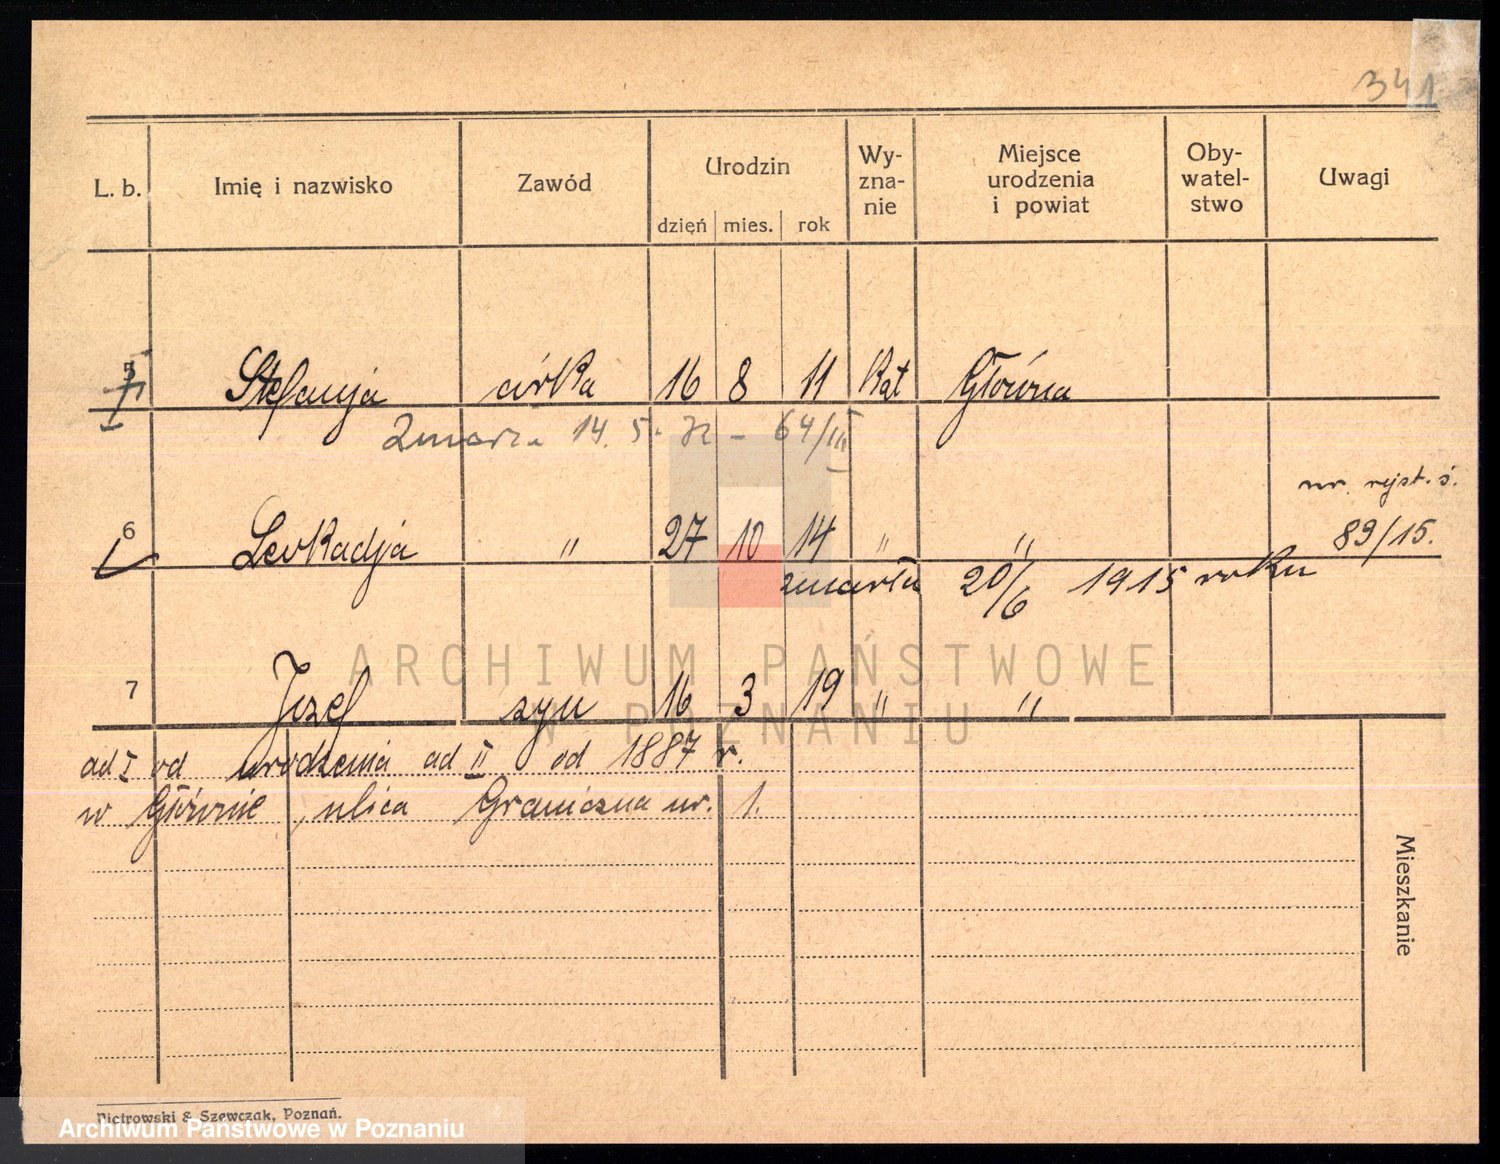 341
L. b. Imię i nazwisko Zawód Urodzin dzień mies. rok Wy-zna-nie Miejsce urodzenia i powiat Oby-watel-stwo Uwagi
5 Stefanja córka 16 8 11 Kat Główna
Zmarła 14. 5. 32 – 64/III
nr. rejst. ś.
6 Leokadja " 27 10 14 " " 89/15.
zmarła 20/6 1915 roku
7 Jozef syn 16 3 19 " "
ad I od urodzenia ad II od 1887 r.
w Głównie, ulica Graniczna nr. 1.
Mieszkanie
Piotrowski & Szewczak, Poznań.
ARCHIWUM PAŃSTWOWE
W POZNANIU
Archiwum Państwowe w Poznaniu